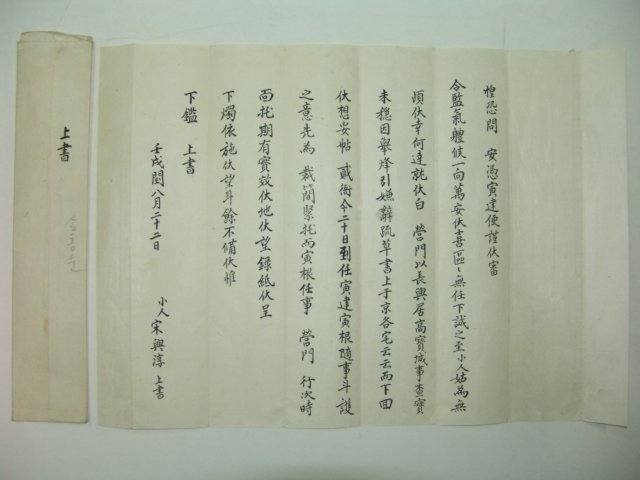 惶恐問 安憑寅達便謹伏審
令監氣體候一向萬安伏喜區〻無任下誠之至小人姑爲無
頉伏幸何達託伏白 營門以長興居高寶城事查實
未穩因擧烽引嫌辭疏草書上于京各宅云云而下回
伏想妥帖 貳衙今二十日到任寅建寅根隨事斗護
之意先爲 裁簡緊托而寅根任事 營門 行次時
面托期有實效伏地伏望錄紙伏呈
下燭依施伏望耳餘不備伏惟
下鑑 上書
壬戌閏八月二十二日
小人宋興淳 上書
上書